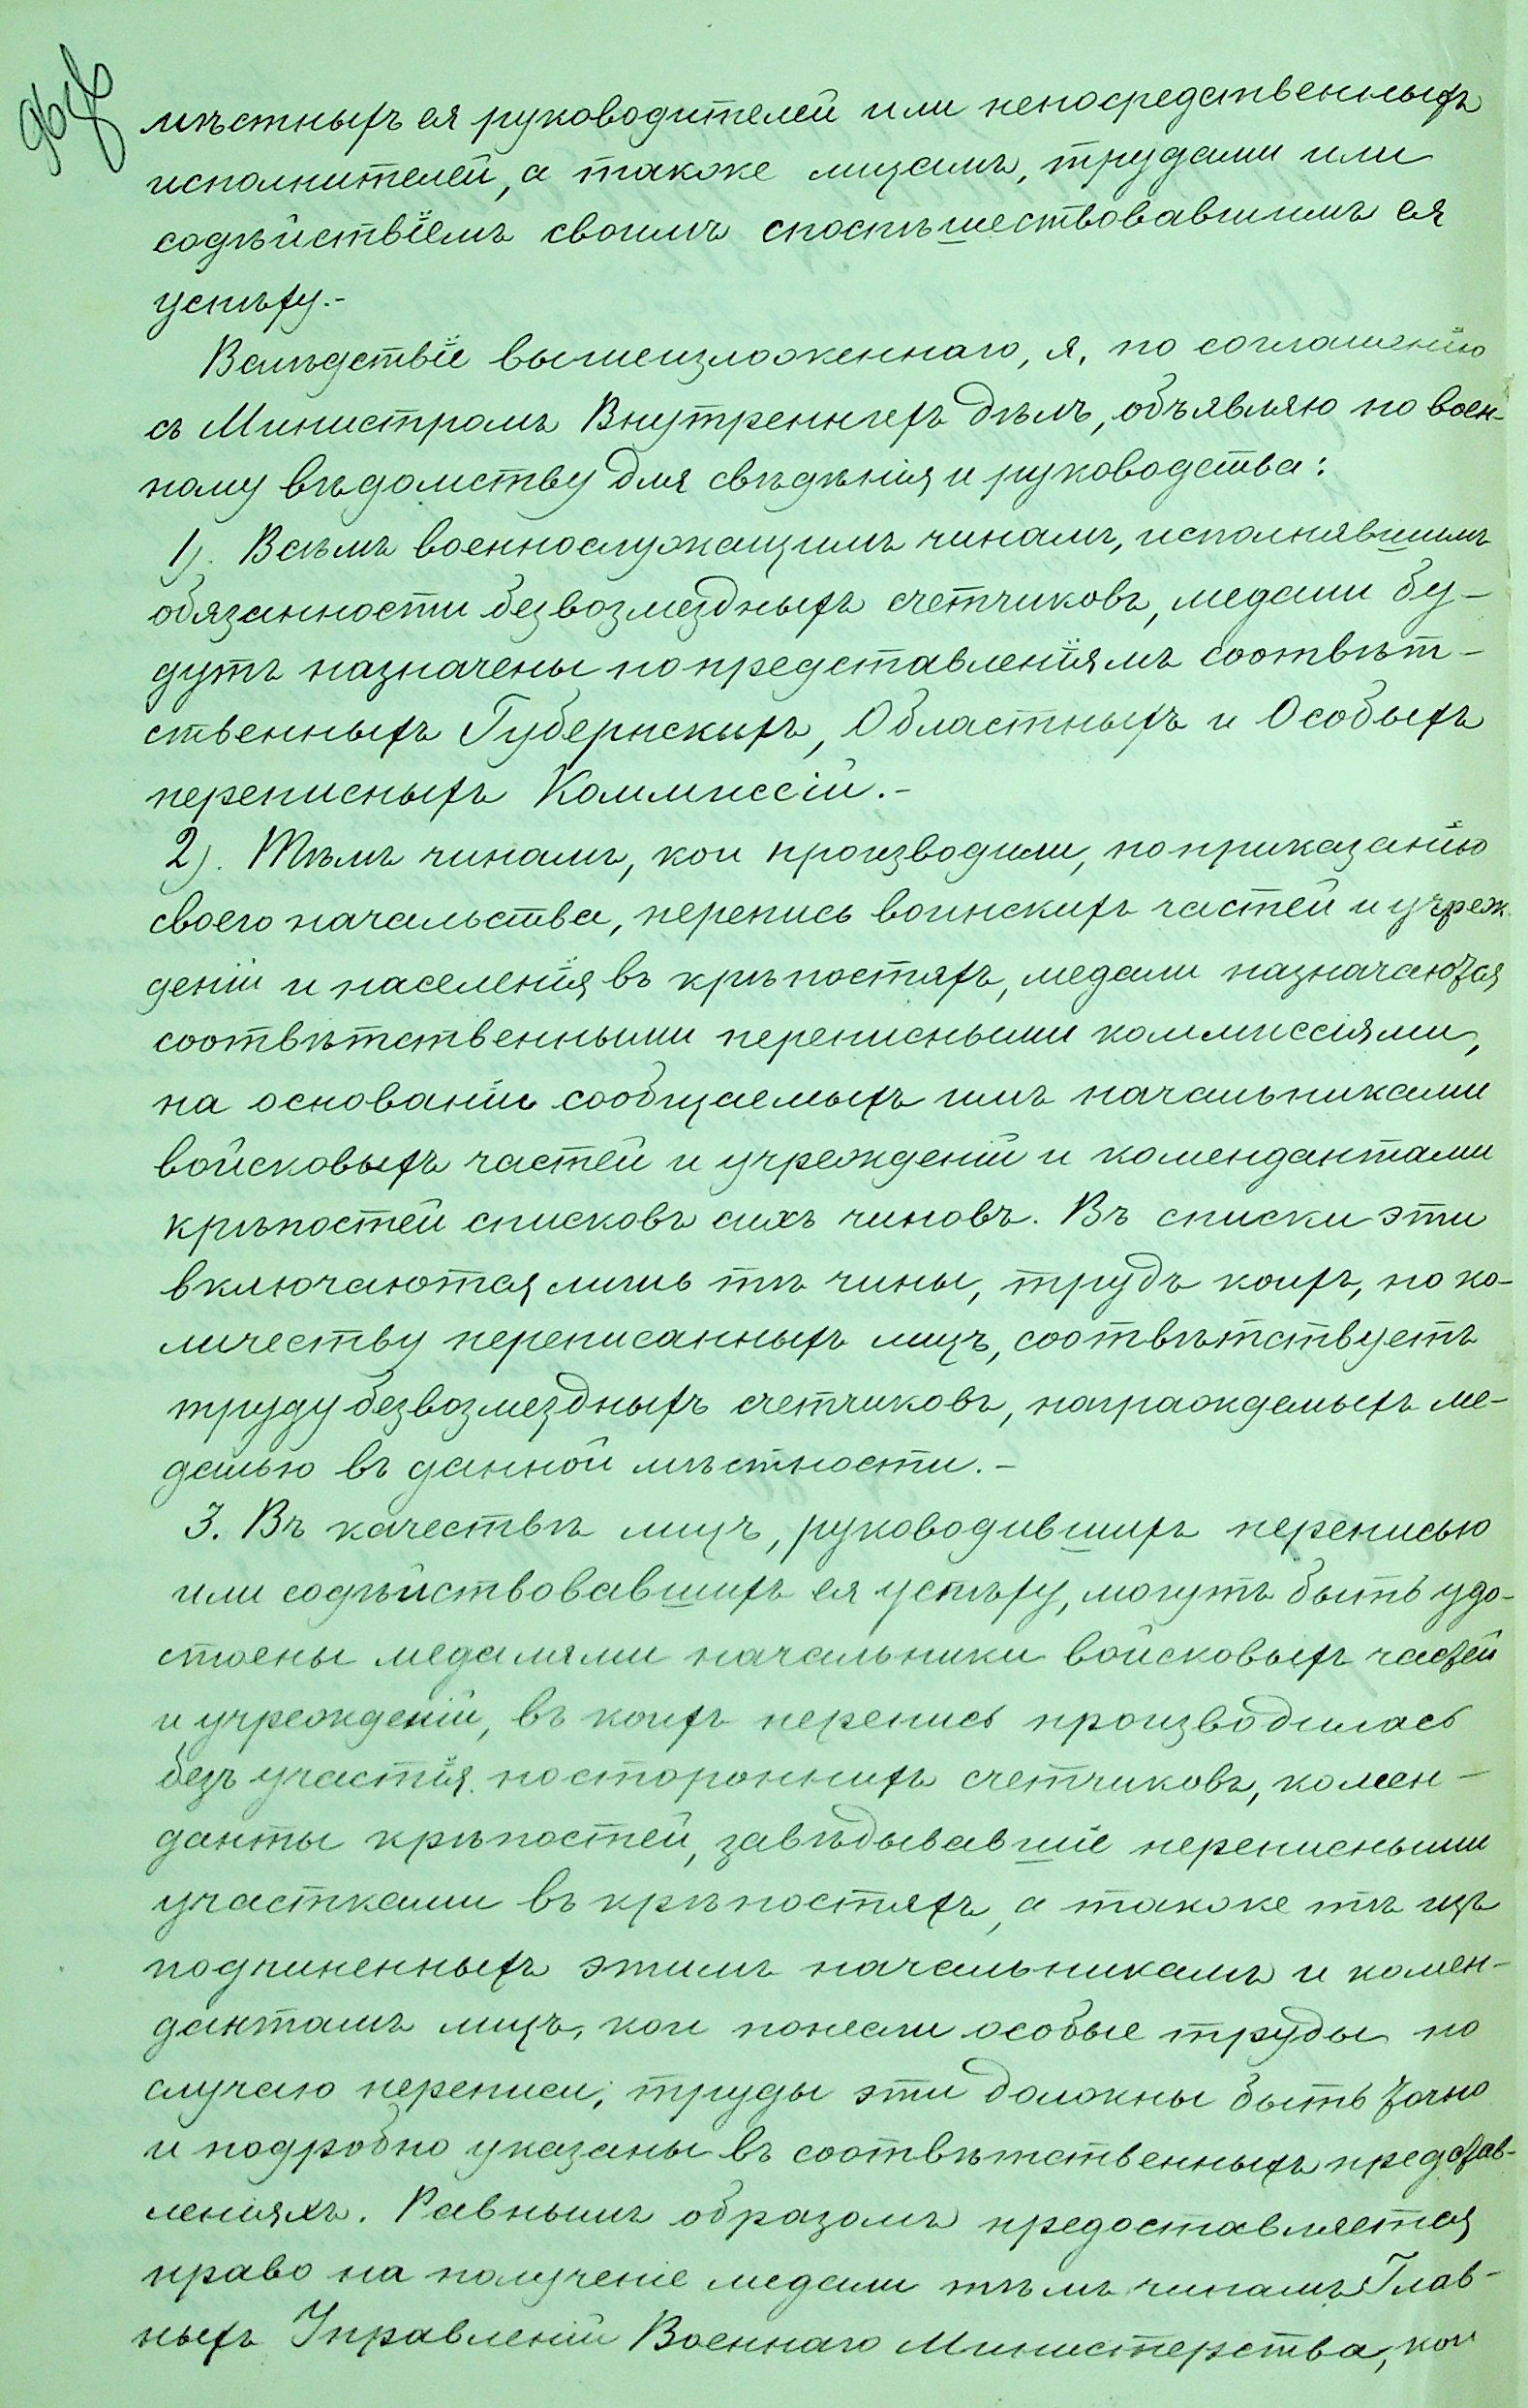 мѣстныхъ ея руководителей или непосредственныхъ
исполнителей, а также лицамъ, трудами или
содѣйствіемъ своимъ споспѣшествовавшимъ ея
успѣху.-
Вслѣдствіе вышеизложеннаго, я, по соглашенію
съ Министромъ Внутреннихъ Дѣлъ, объявляю по воен-
ному вѣдомству для свѣдѣнія и руководства:
1). Всѣмъ военнослужащимъ чинамъ, исполнявшимъ
обязанности безвозмездныхъ счетчиковъ, медали бу-
дутъ назначены по представленіямъ соотвѣт-
ственныхъ Губернскихъ, Областныхъ и Особыхъ
переписныхъ Коммиссій.-
2). Тѣмъ чинамъ, кои производили, по приказанію
своего начальства, перепись воинскихъ частей и учреж-
деній и населенія въ крѣпостяхъ, медали назначаются
соотвѣтственными переписными коммиссіями,
на основаніи сообщаемыхъ имъ начальниками
войсковыхъ частей и учрежденій и комендантами
крѣпостей списковъ сихъ чиновъ. Въ списки эти
включаются лишь тѣ чины, трудъ коихъ, по ко-
личеству переписанныхъ лицъ, соотвѣтствуетъ
труду безвозмездныхъ счетчиковъ, награждаемыхъ ме-
далью въ данной мѣстности.-
3. Въ качествѣ лицъ, руководившихъ переписью
или содѣйствовавшихъ ея успѣху, могутъ быть удо-
стоены медалями начальники войсковыхъ частей
и учрежденій, въ коихъ перепись производилась
безъ участія постороннихъ счетчиковъ, комен-
данты крѣпостей, завѣдывавшіе переписными
участками въ крѣпостяхъ, а также тѣ изъ
подчиненныхъ этимъ начальникамъ и комен-
дантамъ лицъ, кои понесли особые труды по
случаю переписи; труды эти должны быть точно
и подробно указаны въ соотвѣтственныхъ представ-
леніяхъ. Равнымъ образомъ предоставляется
право на полученіе медали тѣмъ чинамъ Глав-
ныхъ Управленій Военнаго Министерства, кои